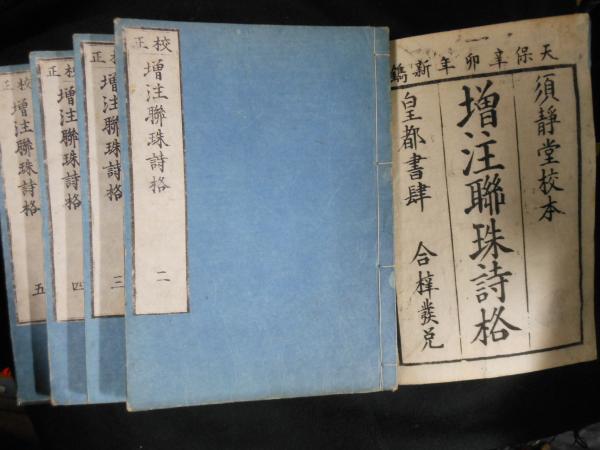 天保辛卯年新鐫
須靜堂校本
增注聯珠詩格
皇都書肆 合梓發兌
校正
增注聯珠詩格
二
校正
增注聯珠詩格
三
校正
增注聯珠詩格
四
校正
增注聯珠詩格
五